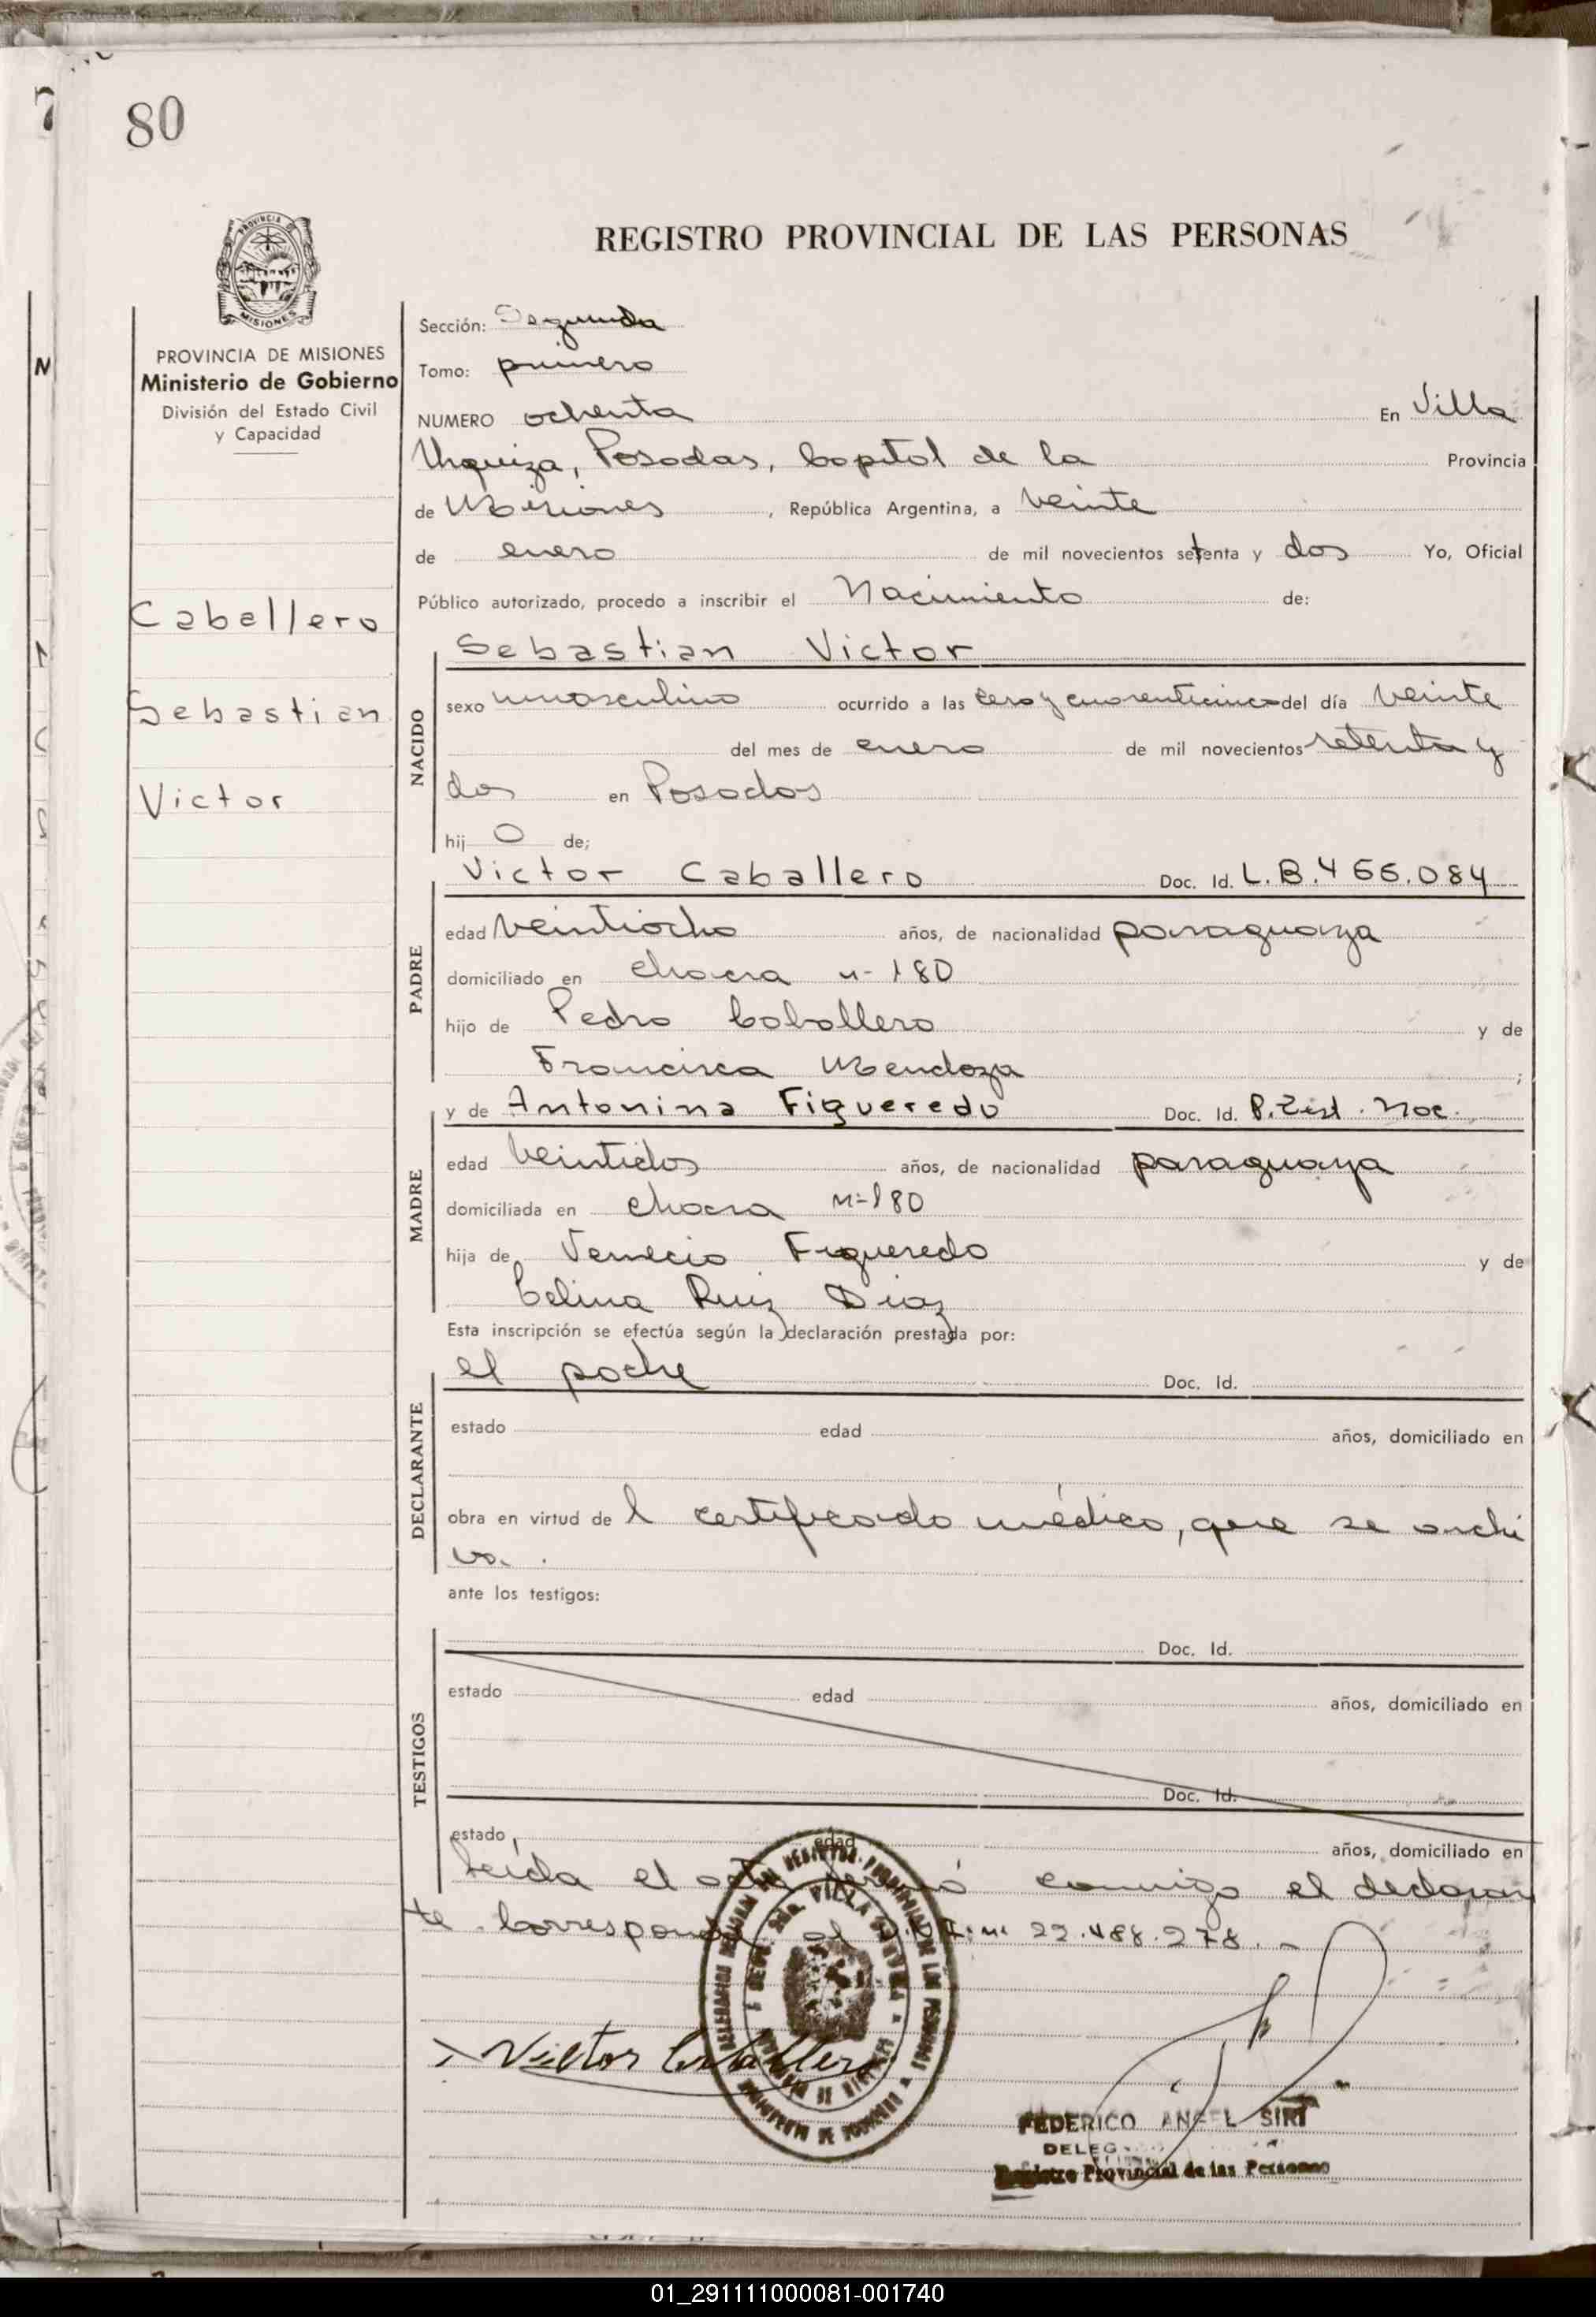 80
REGISTRO PROVINCIAL DE LAS PERSONAS
PROVINCIA
MISIONES
PROVINCIA DE MISIONES
Ministerio de Gobierno
División del Estado Civil
y Capacidad
Caballero
Sebastian
Victor
Sección: Segunda
Tomo: primero
NUMERO ochenta En Villa
Urquiza, Posadas, Capital de la Provincia
de Misiones, República Argentina, a veinte
de enero de mil novecientos setenta y dos Yo, Oficial
Público autorizado, procedo a inscribir el Nacimiento de:
NACIDO
Sebastian Victor
sexo masculino ocurrido a las cero y cuarenticinco del día veinte
del mes de enero de mil novecientos setenta y
dos en Posadas
hij o de;
PADRE
Victor Caballero Doc. Id. L.B.466.084
edad veintiocho años, de nacionalidad paraguaya
domiciliado en chacra n- 180
hijo de Pedro Caballero y de
Francisca Mendoza ;
MADRE
y de Antonina Figueredo Doc. Id. Nac.
edad veintidos años, de nacionalidad paraguaya
domiciliada en chacra n= 180
hija de Figueredo y de
Celina Ruiz Diaz
Esta inscripción se efectúa según la declaración prestada por:
DECLARANTE
el padre Doc. Id.
estado edad años, domiciliado en
obra en virtud de l certificado médico, que se archi
va.
ante los testigos:
TESTIGOS
Doc. Id.
estado edad años, domiciliado en
Doc. Id.
estado edad años, domiciliado en
Leída el acta firmó conmigo el declaran
te. Corresponde al D.N.I: n: 22.488.278.-
Victor Caballero
FEDERICO ANGEL SIRI
DELEG
Registro Provincial de las Personas
01_291111000081-001740